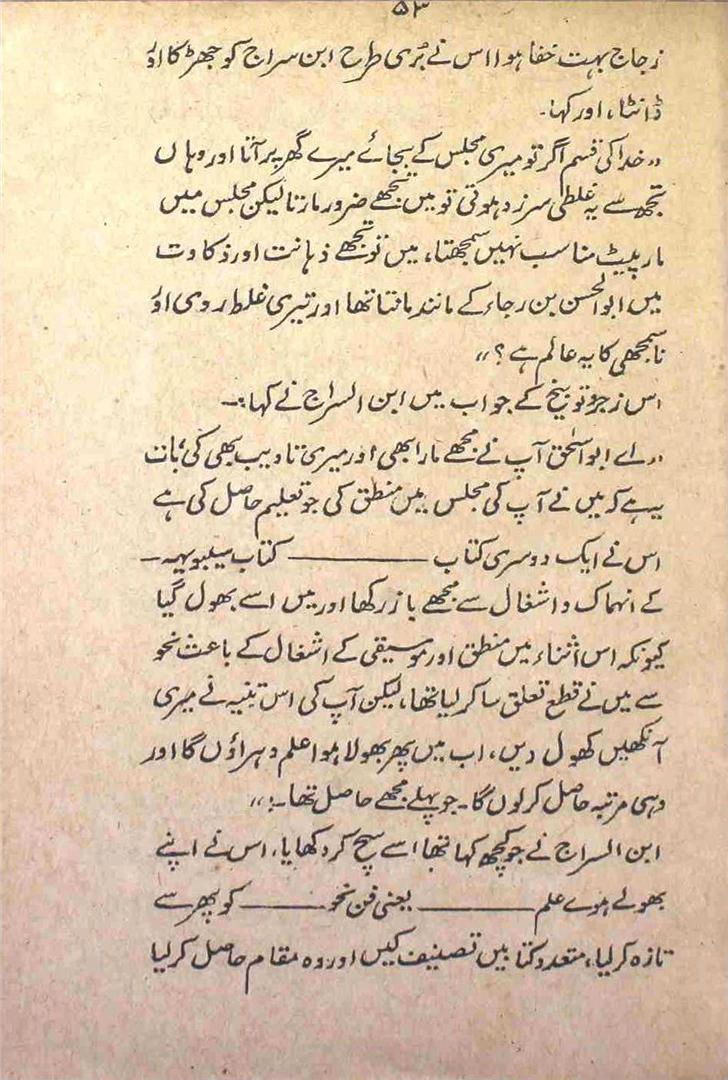 ۵۳
زجاج بہت خفا ہوا اس نے بُری طرح ابن سراج کو جھڑکا اور
ڈانٹا، اور کہا۔
،، خدا کی قسم اگر تو میری مجلس کے بجائے میرے گھر پر آتا اور وہاں
تجھ سے یہ غلطی سرزد ہوتی تو میں تجھے ضرور مارتا لیکن مجلس میں
مار پیٹ مناسب نہیں سمجھتا، میں تو تجھے ذہانت اور ذکاوت
میں ابوالحسن بن رجاء کے مانند مانتا تھا اور تیری غلط روی اور
ناسمجھی کا یہ عالم ہے؟ ،،
اس زجر و توبیخ کے جواب میں ابن السراج نے کہا:۔
،، اے ابواسحٰق آپ نے مجھے مارا بھی اور میری تادیب بھی کی، بات
یہ ہے کہ میں نے آپ کی مجلس میں منطق کی جو تعلیم حاصل کی ہے
اس نے ایک دوسری کتاب ——— کتاب سیبویہہ —
کے انہماک و اشغال سے مجھے باز رکھا اور میں اسے بھول گیا
کیونکہ اس اثناء میں منطق اور موسیقی کے اشغال کے باعث نحو
سے میں نے قطع تعلق سا کر لیا تھا، لیکن آپ کی اس تنبیہ نے میری
آنکھیں کھول دیں، اب میں پھر بھولا ہوا علم دہراؤں گا اور
وہی مرتبہ حاصل کر لوں گا۔ جو پہلے مجھے حاصل تھا۔؛ ،،
ابن السراج نے جو کچھ کہا تھا اسے سچ کر دکھایا، اس نے اپنے
بھولے ہوے علم ——— یعنی فن نحو ——— کو پھر سے
تازہ کر لیا، متعدد کتابیں تصنیف کیں اور وہ مقام حاصل کر لیا